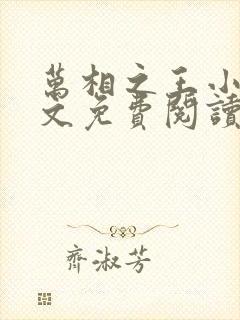 萬相之王小
文免費閱讀
齊淑芳